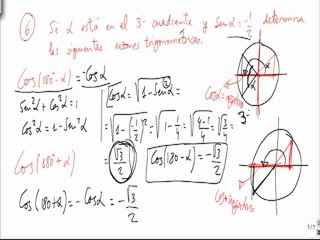 6 Si α está en el 3er cuadrante y Sen α = -1/2 determina
las siguientes razones trigonométricas.
Cos(180°-α) = -Cos α
Cos α = √(1 - Sen²α) =
Sen²α + Cos²α = 1
Cos²α = 1 - Sen²α
= √(1 - (-1/2)²) = √(1 - 1/4) = √((4-1)/4) = √(3/4) =
= √3/2
Cos(180-α) = -√3/2
Cos(180+α)
Cos(180+α) = -Cos α = -√3/2
Cos α = negativo
Cos α negativo
1/1